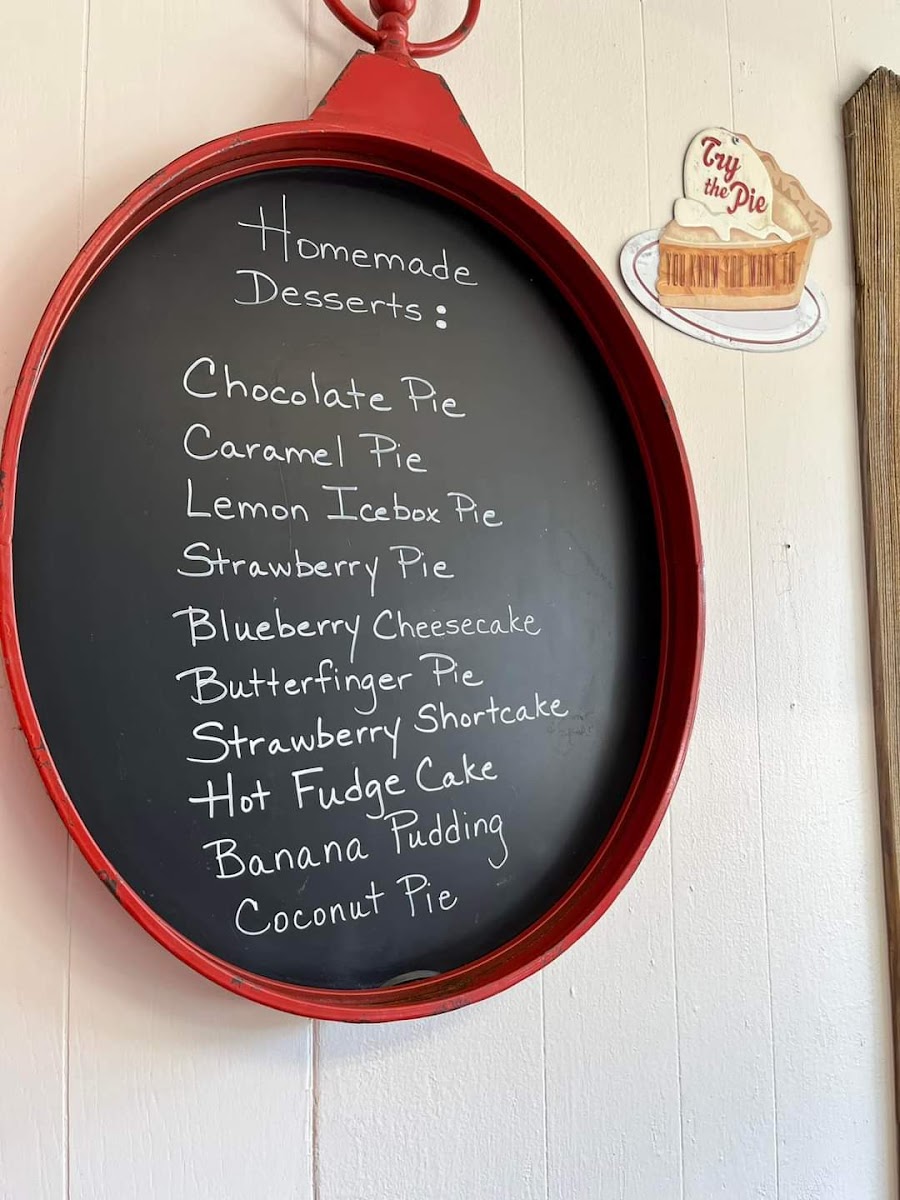 Homemade
Desserts:
Chocolate Pie
Caramel Pie
Lemon Icebox Pie
Strawberry Pie
Blueberry Cheesecake
Butterfinger Pie
Strawberry Shortcake
Hot Fudge Cake
Banana Pudding
Coconut Pie
Try
the Pie
YOU KNOW YOU WANT TO